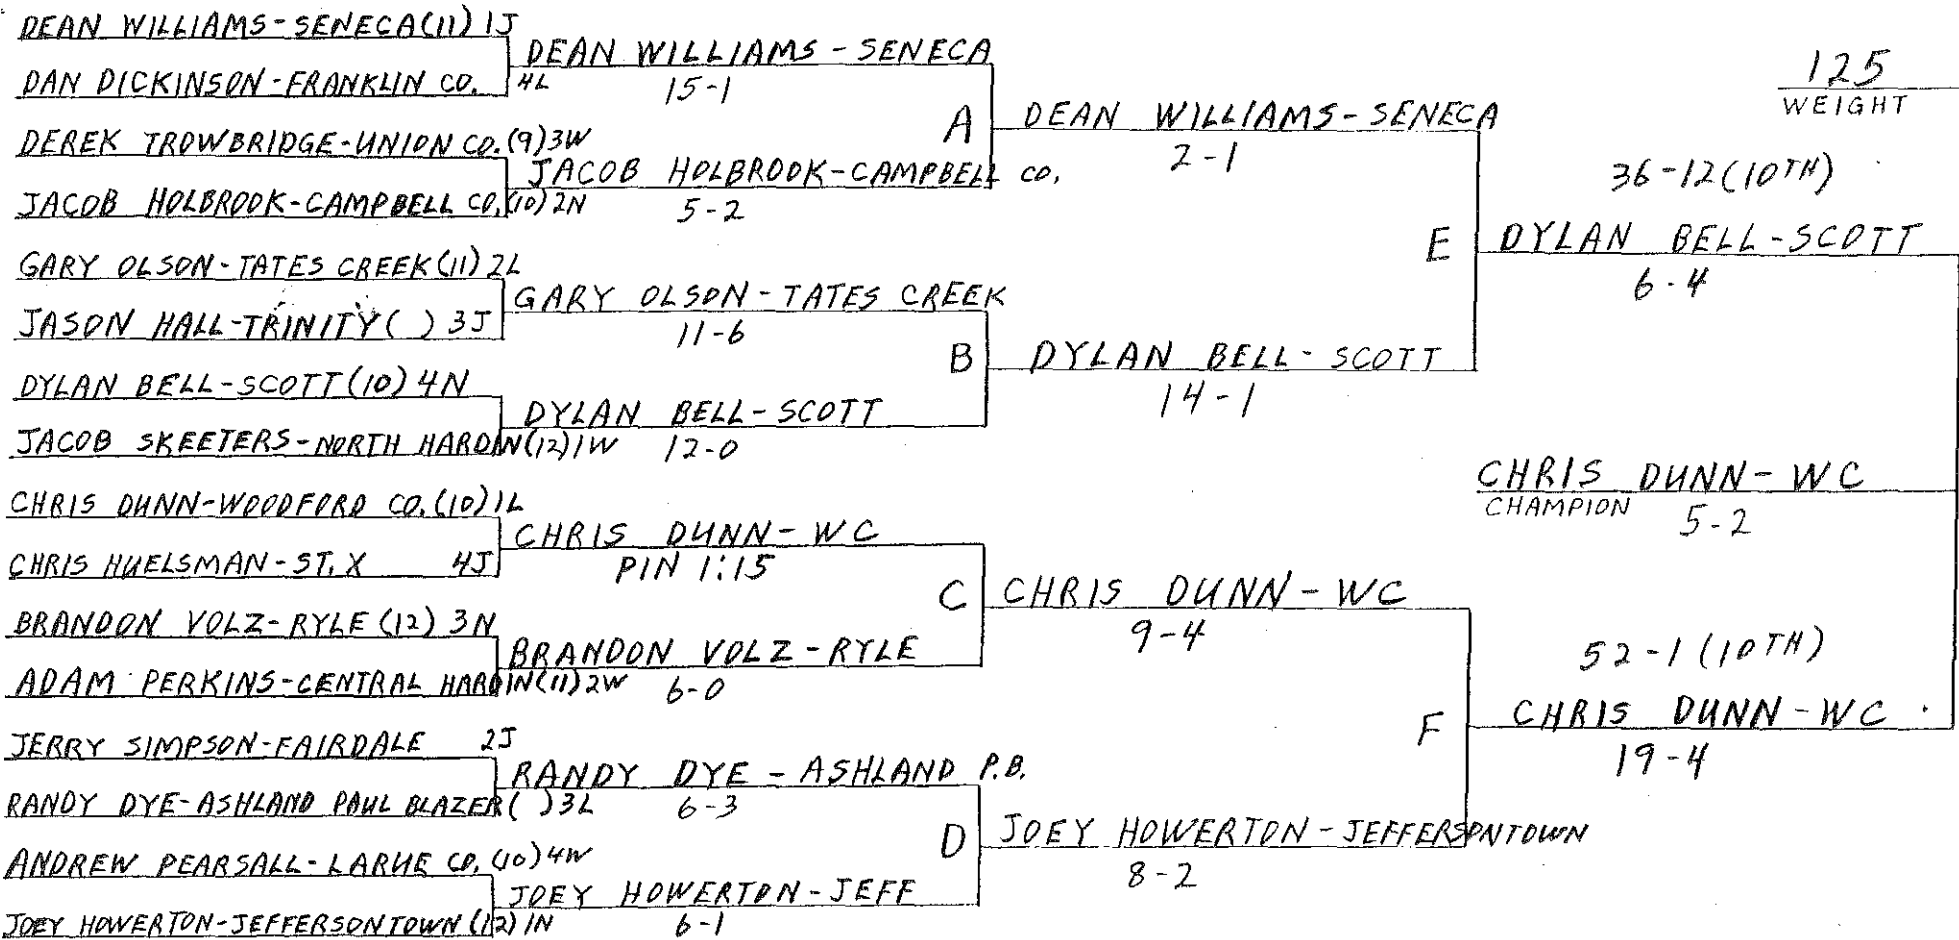 DEAN WILLIAMS-SENECA(11) 1J
DAN DICKINSON-FRANKLIN CO. 4L
DEREK TROWBRIDGE-UNION CO.(9)3W
JACOB HOLBROOK-CAMPBELL CO.(10)2N
GARY OLSON-TATES CREEK(11) 2L
JASON HALL-TRINITY( ) 3J
DYLAN BELL-SCOTT(10) 4N
JACOB SKEETERS-NORTH HARDIN(12)1W
CHRIS DUNN-WOODFORD CO.(10)1L
CHRIS HUELSMAN-ST. X 4J
BRANDON VOLZ-RYLE(12) 3N
ADAM PERKINS-CENTRAL HARDIN(11)2W
JERRY SIMPSON-FAIRDALE 2J
RANDY DYE-ASHLAND PAUL BLAZER( )3L
ANDREW PEARSALL-LARUE CO.(10)4W
JOEY HOWERTON-JEFFERSONTOWN(12)1N
DEAN WILLIAMS-SENECA
15-1
JACOB HOLBROOK-CAMPBELL CO.
5-2
GARY OLSON-TATES CREEK
11-6
DYLAN BELL-SCOTT
12-0
CHRIS DUNN-WC
PIN 1:15
BRANDON VOLZ-RYLE
6-0
RANDY DYE-ASHLAND P.B.
6-3
JOEY HOWERTON-JEFF
6-1
A
DEAN WILLIAMS-SENECA
2-1
B
DYLAN BELL-SCOTT
14-1
C
CHRIS DUNN-WC
9-4
D
JOEY HOWERTON-JEFFERSONTOWN
8-2
125
WEIGHT
36-12(10TH)
E
DYLAN BELL-SCOTT
6-4
CHRIS DUNN-WC
CHAMPION
5-2
52-1(10TH)
F
CHRIS DUNN-WC
19-4